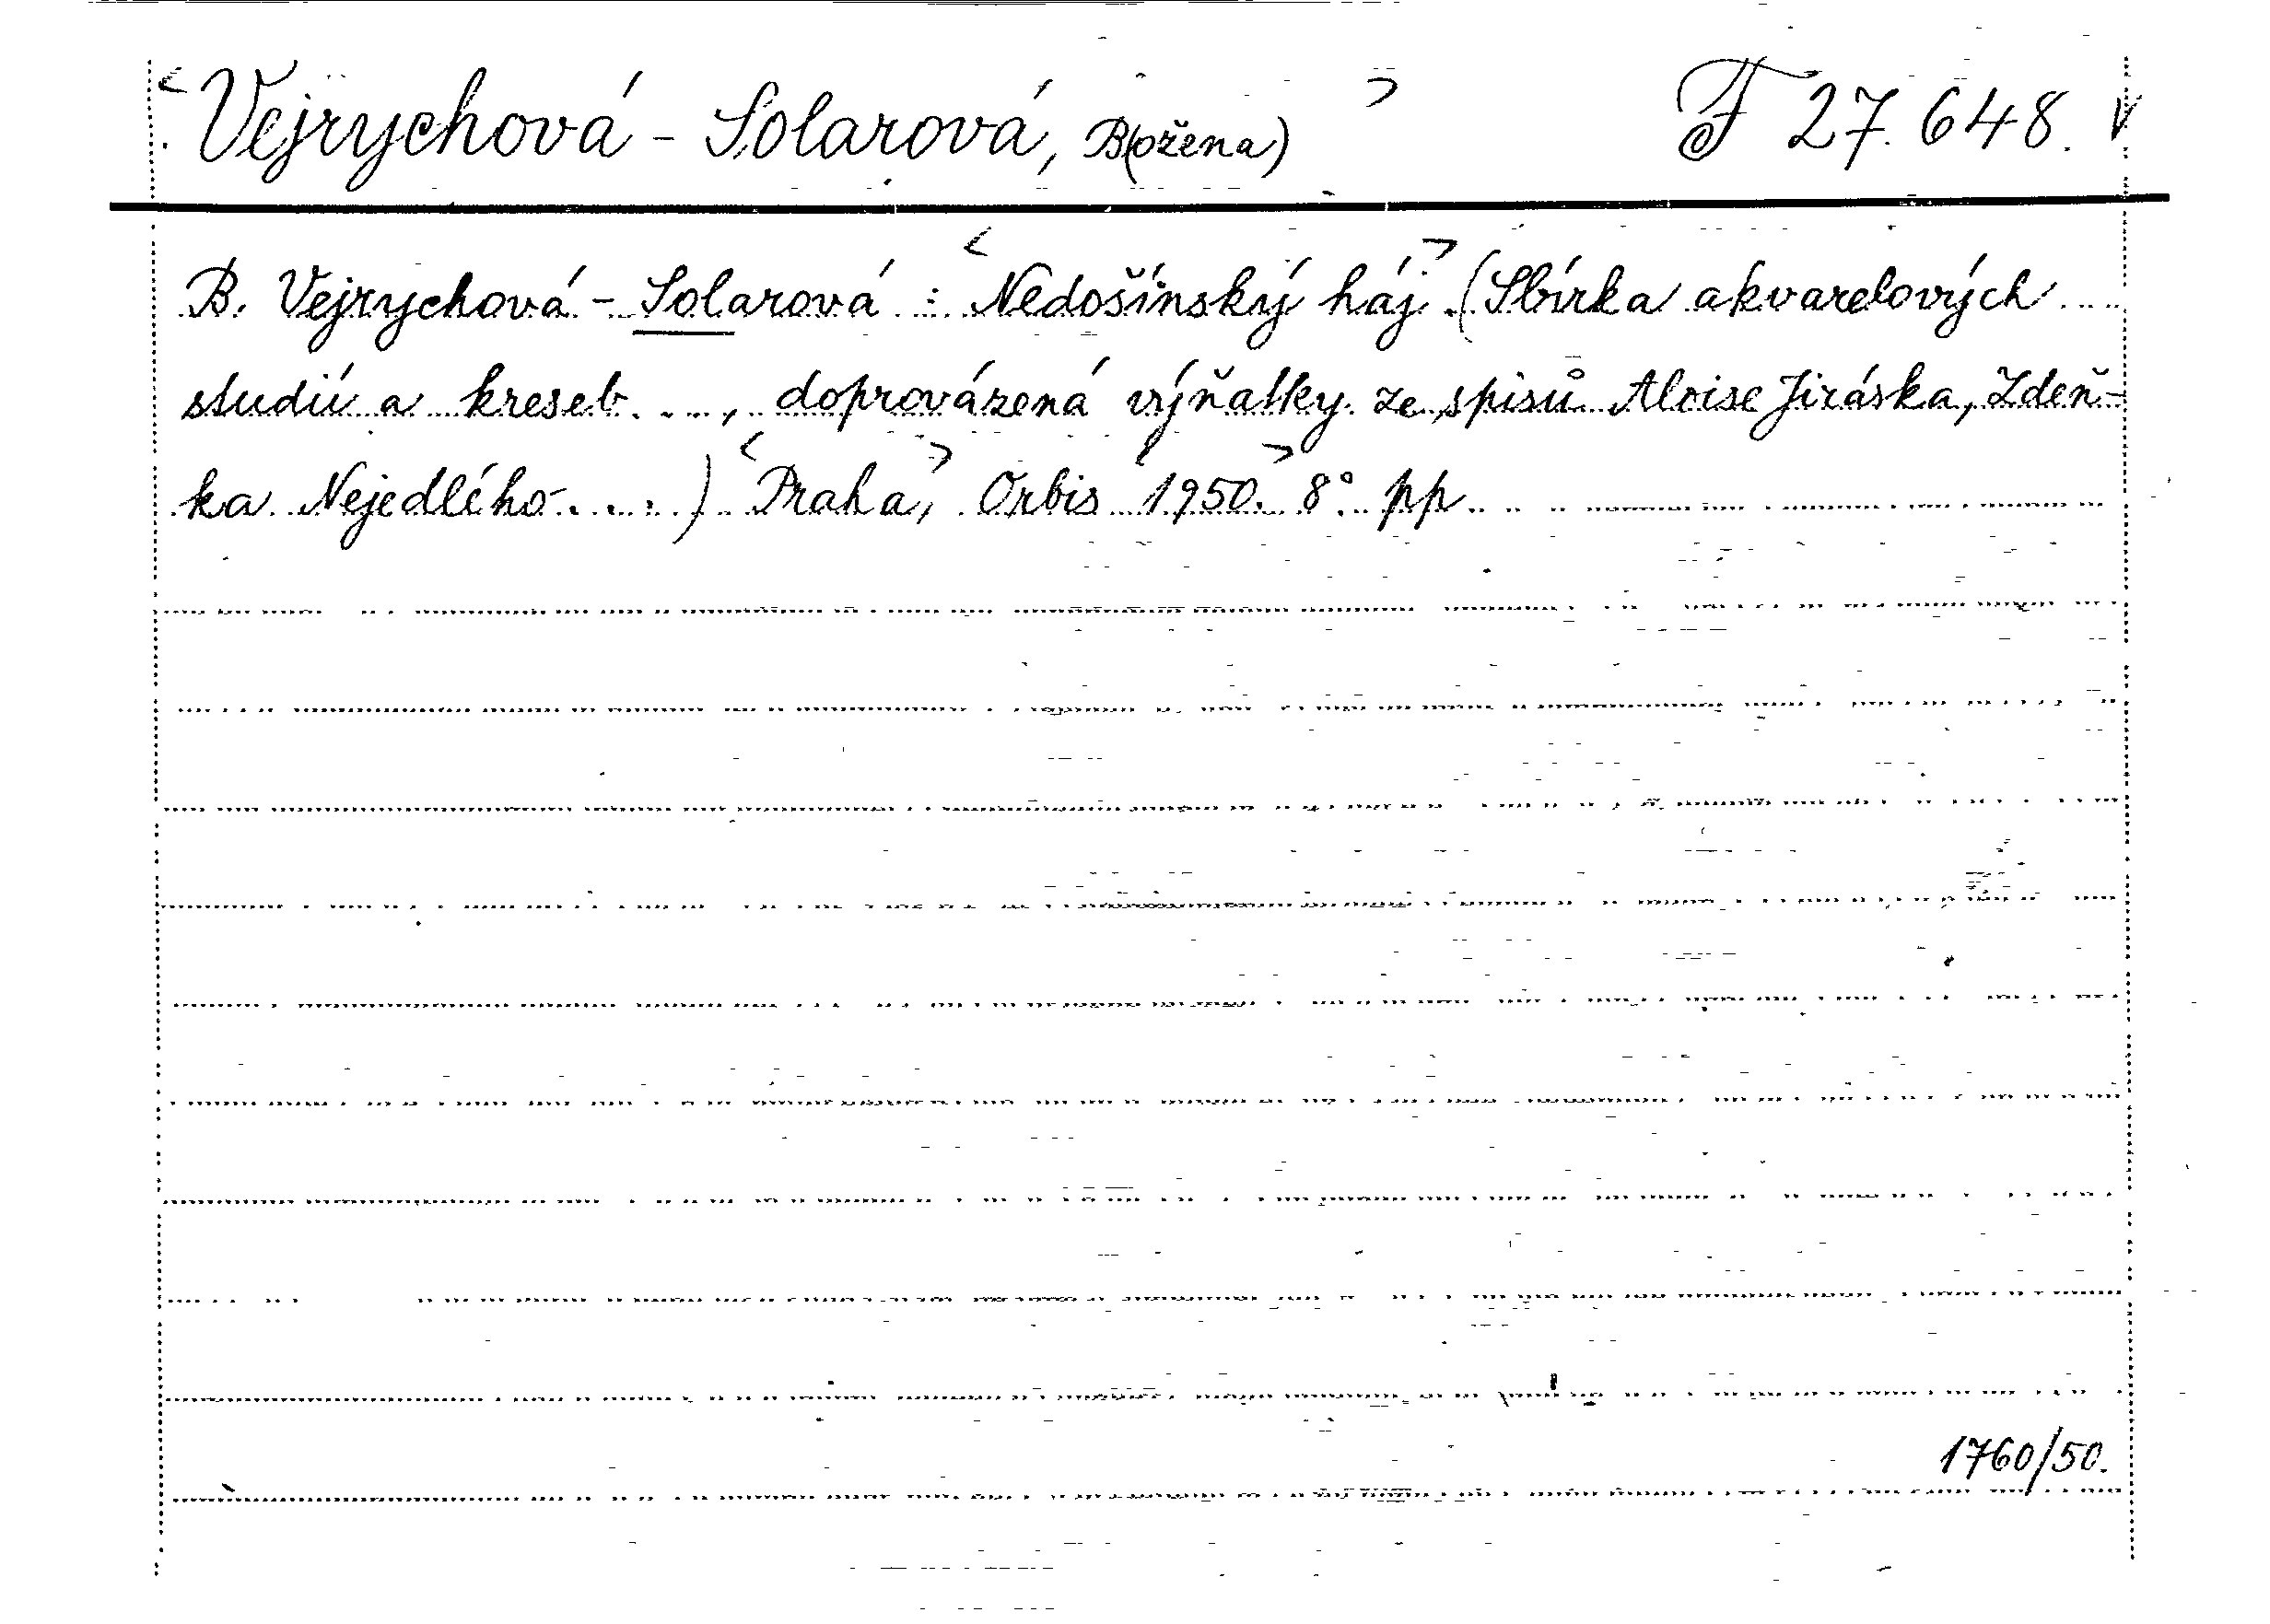 <Vejrychová - Solarová, B(ožena)> F 27.648. V
B. Vejrychová - Solarová : <Nedošínský háj> (Sbírka akvarelových
studií a kreseb ..., doprovázená výňatky ze spisů Aloise Jiráska, Zdeň-
ka Nejedlého ...) <Praha>, Orbis <1950.> 8° pp
1760/50.